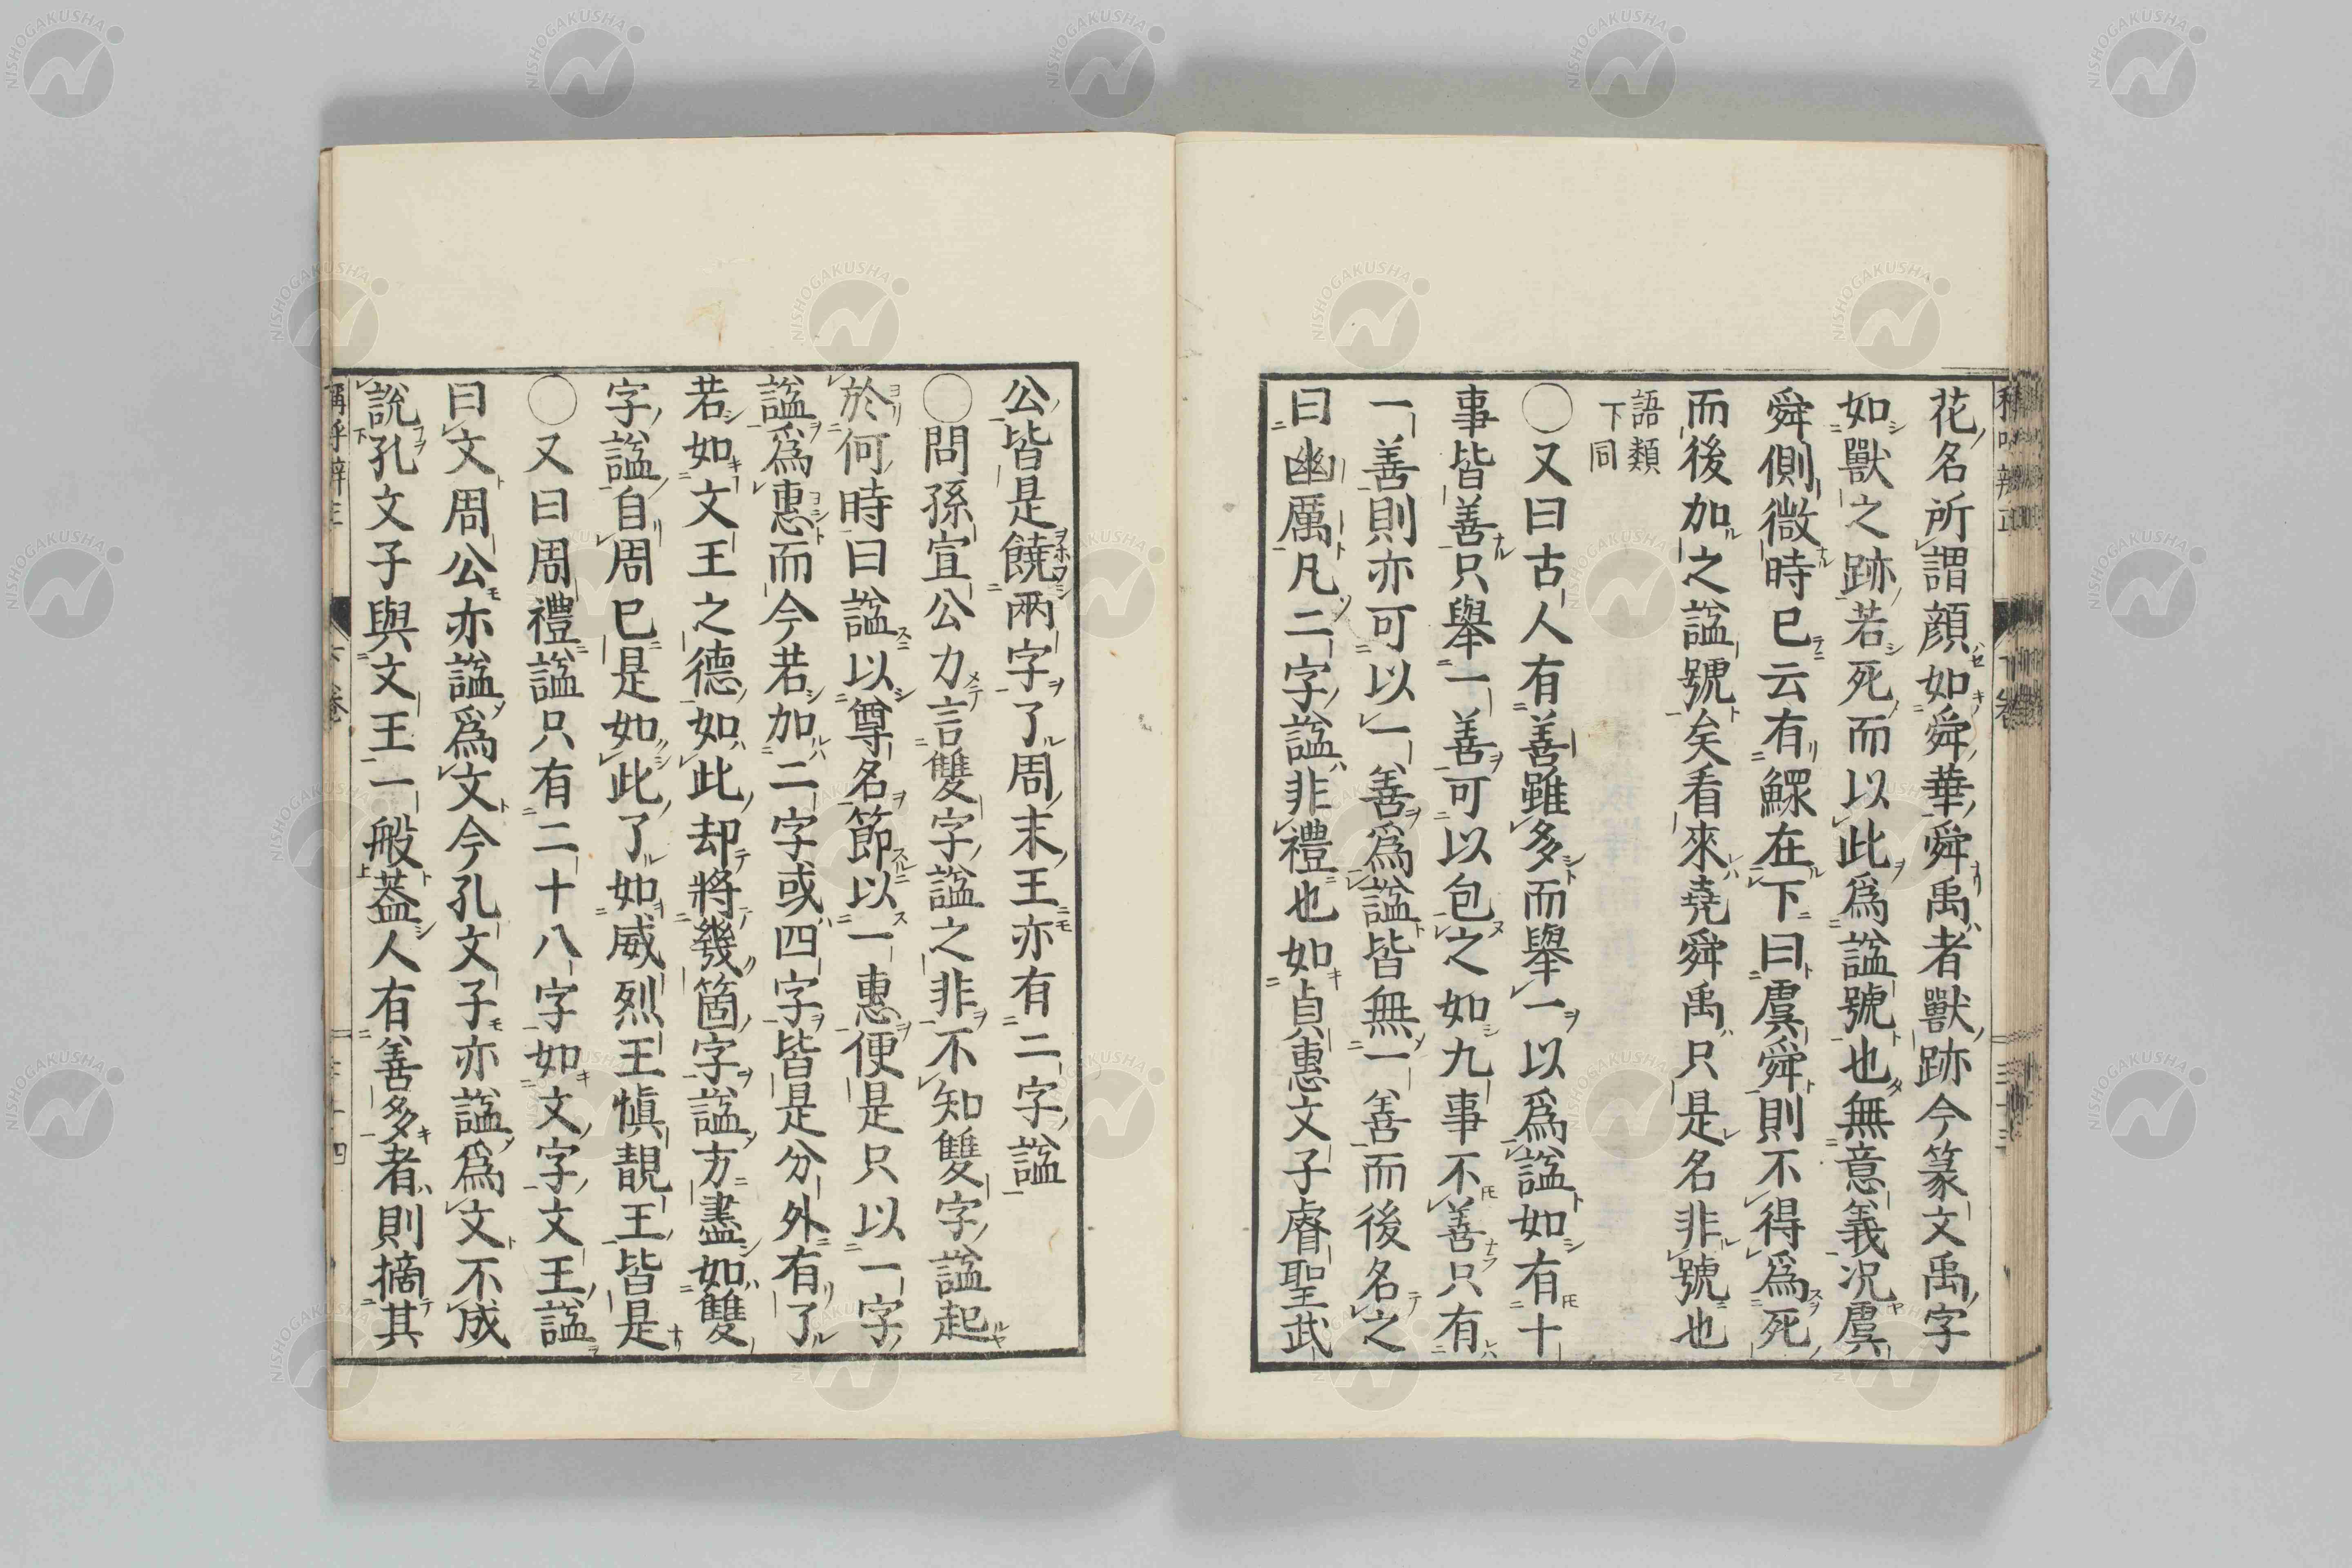 花名所謂顔如舜華舜禹者獸跡今篆文禹字
如獸之跡若死而以此爲謚號也無意義况虞
舜側微時已云有鰥在下曰虞舜則不得爲死
而後加之謚號矣看來堯舜禹只是名非號也
語類
下同
○又曰古人有善雖多而舉一以爲謚如有十
事皆善只舉一善可以包之如九事不善只有
一善則亦可以一善爲謚皆無一善而後名之
曰幽厲凡二字謚非禮也如貞惠文子睿聖武
公皆是饒兩字了周末王亦有二字謚
○問孫宣公力言雙字謚之非不知雙字謚起
於何時曰謚以尊名節以一惠便是只以一字
謚爲惠而今若加二字或四字皆是分外有了
若如文王之德如此却將幾箇字謚方盡如雙
字謚自周已是如此了如威烈王愼靚王皆是
○又曰周禮謚只有二十八字如文字文王謚
曰文周公亦謚爲文今孔文子亦謚爲文不成
說孔文子與文王一般蓋人有善多者則摘其